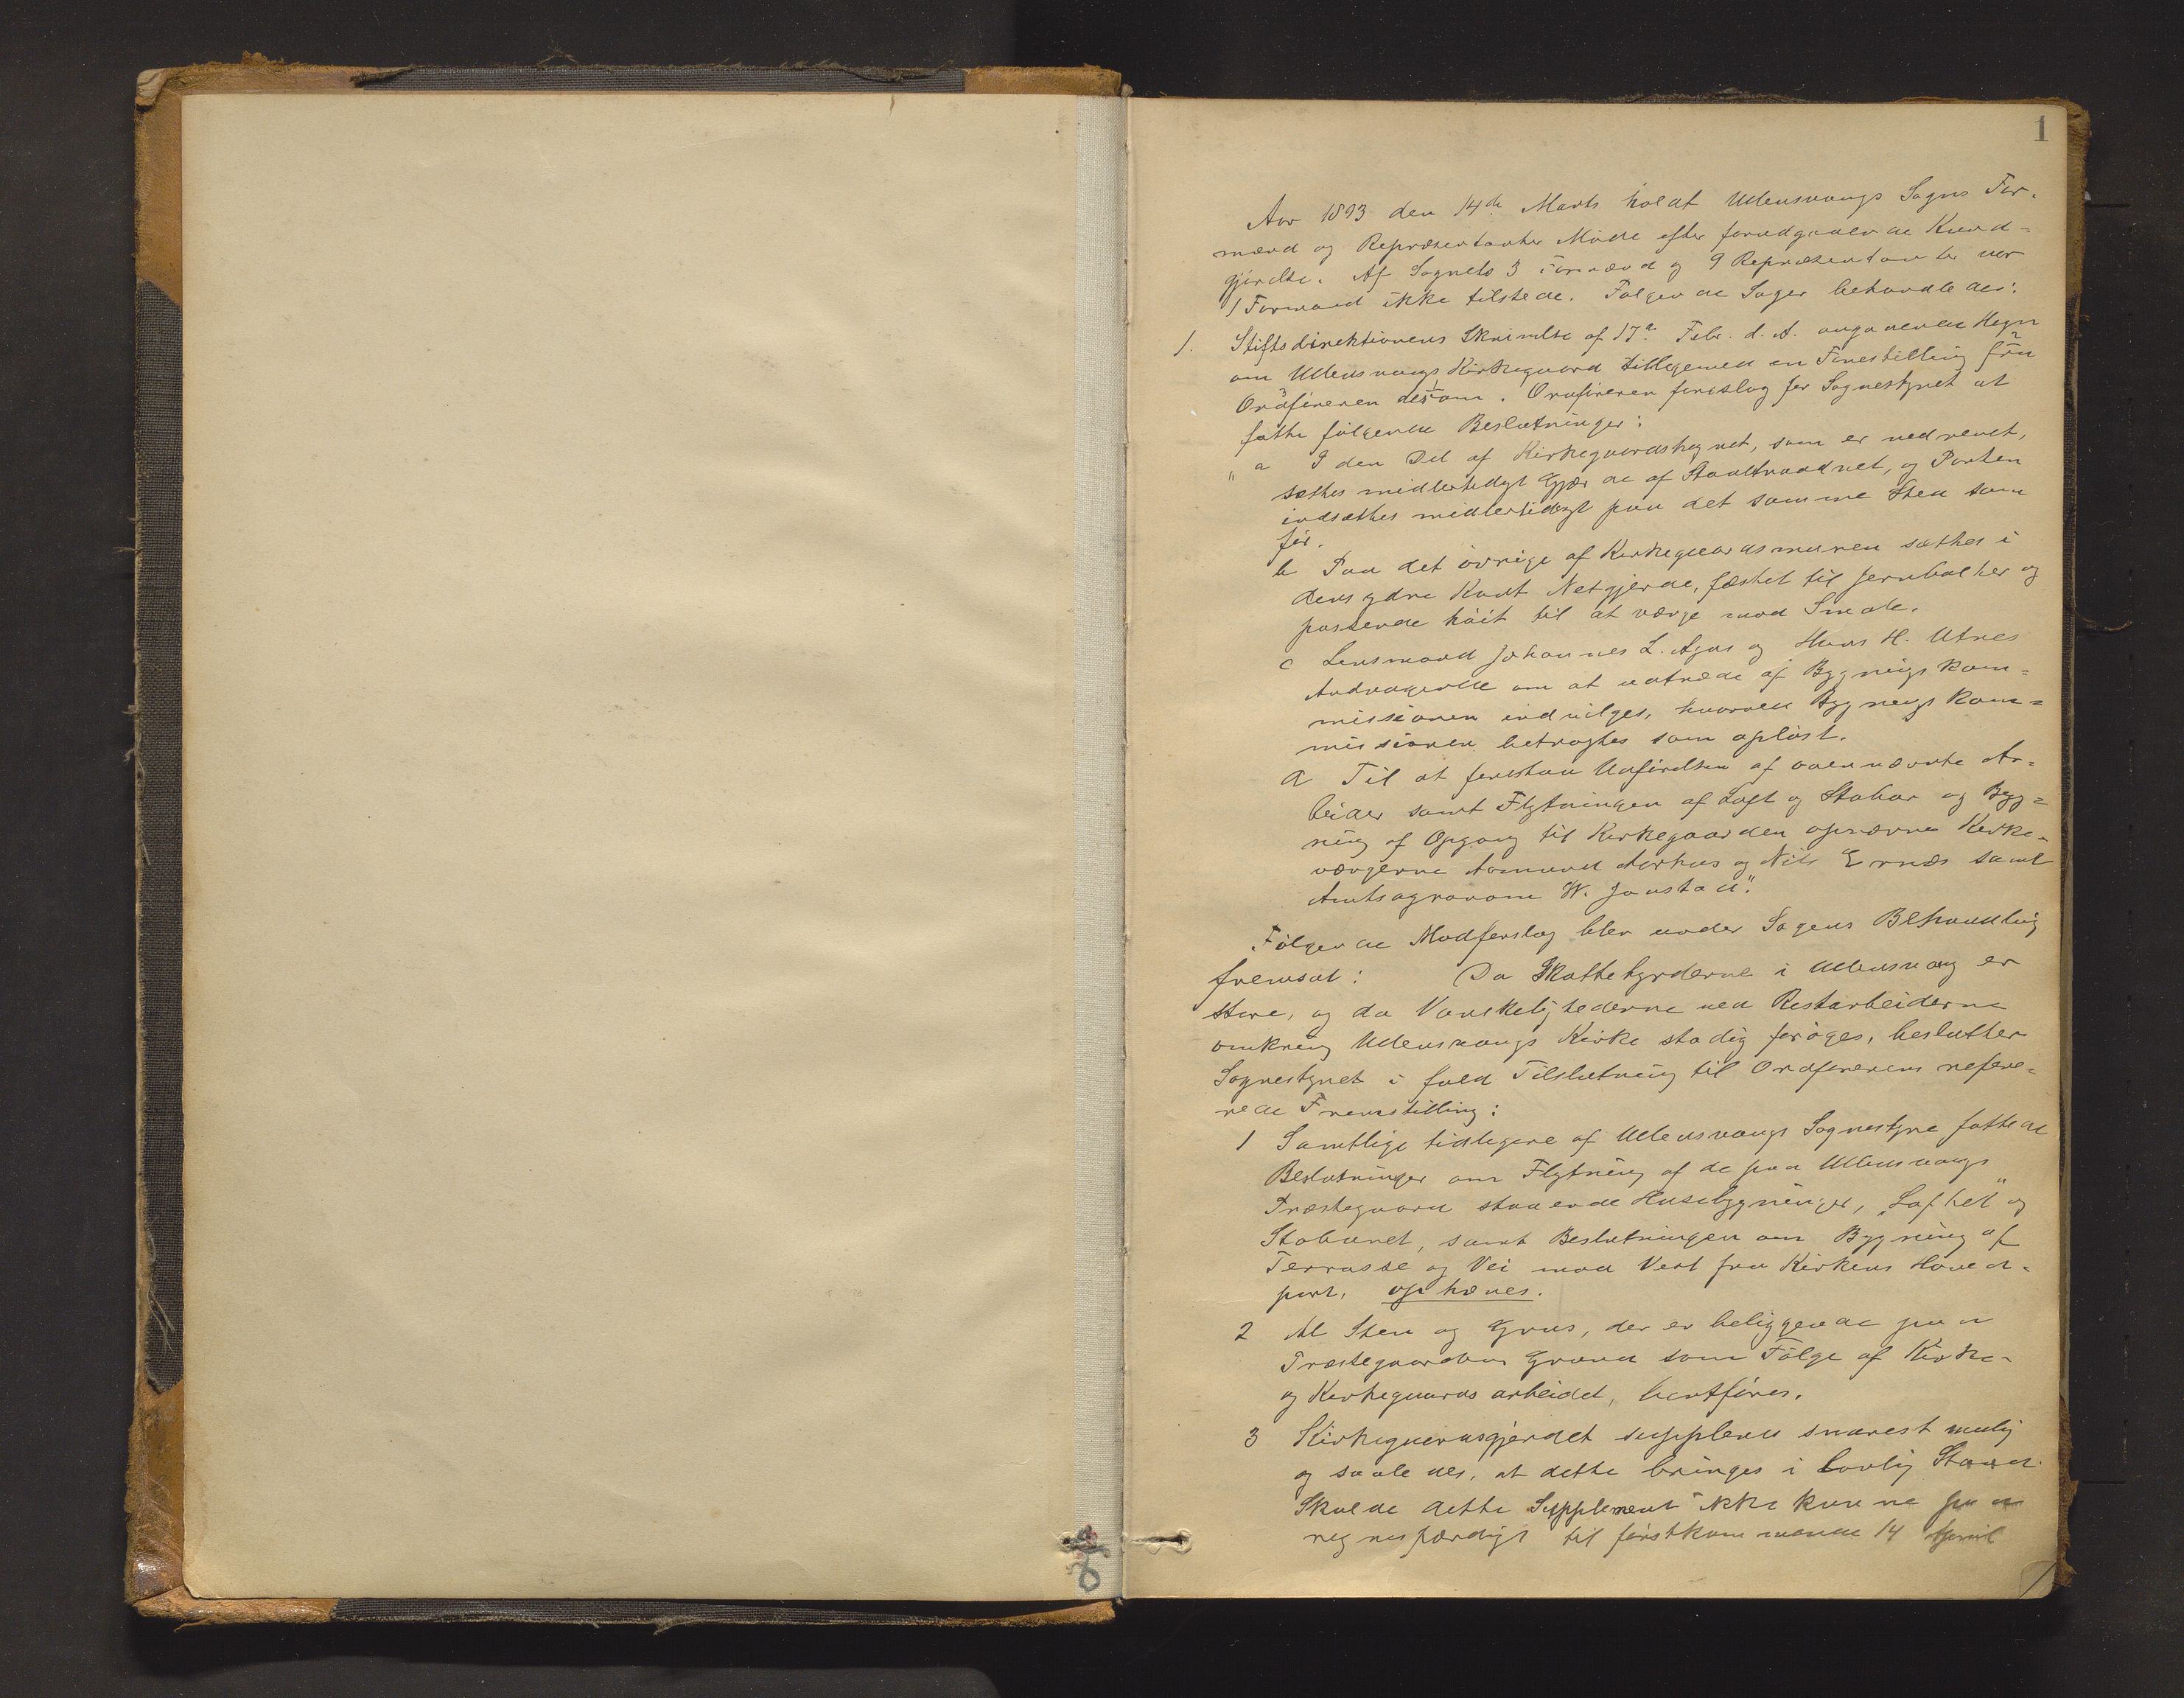 1
Aar 1893 den 14de Marts holdt Ullensvangs Sogns For-
mænd og Repræsentanter Møde efter forudgaaende Kund-
gjørelse. Af Sognets 3 Formænd og 9 Repræsentanter var
1 Formand ikke tilstede. Følgende Sager behandledes:
1. Stiftsdirektionens Skrivelse af 17de Febr. d. A. angaaende Hegn
om Ullensvangs Kirkegaard tilligemed en Forestilling fra
Ordføreren desom. Ordføreren foreslog for Sognestyret at
fatte følgende Beslutninger:
"a I den Del af Kirkegaardshegnet, som er nedrevet,
sættes midlertidigt Gjærde af Staaltraadnet, og Porten
indsættes midlertidigt paa det samme Sted som
før.
b Paa det øvrige af Kirkegaardsmuren sættes i
dens ydre Kant Netgjerde, fæstet til Jernbolter og
passende høit til at værge mod Smale.
c Lensmand Johannes L. Aga og Hans H. Utnes
Andragende om at udtræde af Bygningskom-
missionen indvilges, hvorved Bygningskom-
missionen betragtes som opløst.
d Til at forestaa Udførelsen af ovennævnte Ar-
beider samt Flytningen af Loft og Stabur og Byg-
ning af Opgang til Kirkegaarden opnævnes Kirke-
værgerne Aamund Aarhus og Nils Ernæs samt
Amtsagronom W. Jaastad."
Følgende Modforslag blev under Sagens Behandling
fremsat: Da Skattebyrderne i Ullensvang er
store, og da Vanskelighederne ved Restarbeiderne
omkring Ullensvangs Kirke stadig forøges, beslutter
Sognestyret i fuld Tilslutning til Ordførerens refere-
rede Fremstilling:
1 Samtlige tidligere af Ullensvangs Sognestyre fattede
Beslutninger om Flytning af de paa Ullensvangs
Præstegaard staaende Husebygninger, "Loftet" og
Staburet, samt Beslutningen om Bygning af
Terrasse og Vei mod Vest fra Kirkens Hoved-
port, ophæves.
2 Al Sten og Grus, der er beliggende paa
Præstegaardens Grund som Følge af Kirke-
og Kirkegaardsarbeidet, bortføres.
3 Kirkegaardsgjerdet suppleres snarest mulig
og saaledes, at dette bringes i lovlig Stand.
Skulde dette Supplement ikke kunne paa
regnes færdigt til førstkommende 14 April